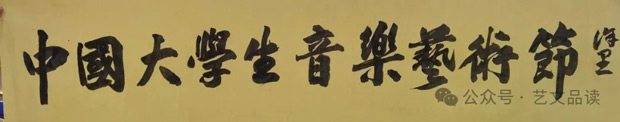 中國大學生音樂藝術節
公众号·艺文品读